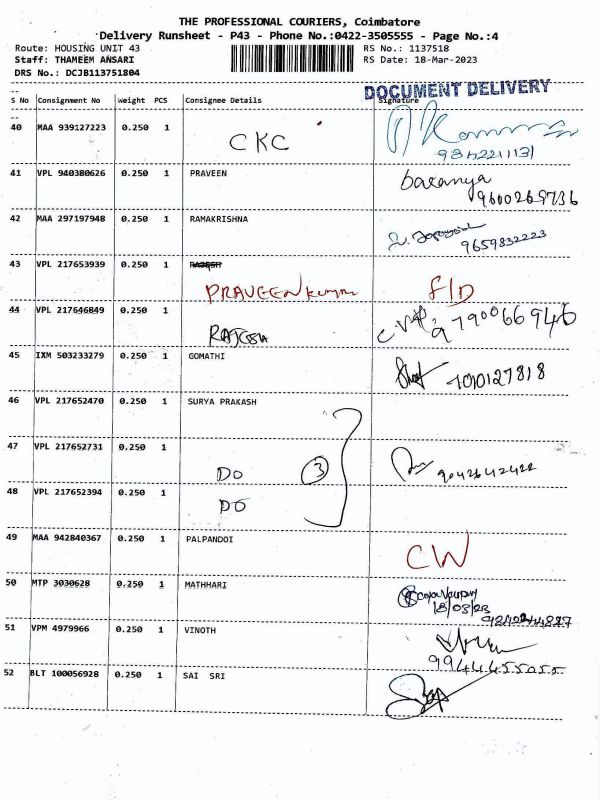 THE PROFESSIONAL COURIERS, Coimbatore
Delivery Runsheet - P43 - Phone No.:0422-3505555 - Page No.:4
Route: HOUSING UNIT 43 RS No.: 1137518
Staff: THAMEEM ANSARI RS Date: 18-Mar-2023
DRS No.: DCJB113751804
DOCUMENT DELIVERY
S No Consignment No Weight PCS Consignee Details Signature
40 MAA 939127223 0.250 1
CKC
41 VPL 940380626 0.250 1 PRAVEEN
9600269736
42 MAA 297197948 0.250 1 RAMAKRISHNA
9659832223
43 VPL 217653939 0.250 1 RAJESH
PRAVEEN kumar F/D
44 VPL 217646849 0.250 1
RAJESH 790066946
45 IXM 503233279 0.250 1 GOMATHI
46 VPL 217652470 0.250 1 SURYA PRAKASH
47 VPL 217652731 0.250 1
DO 3 9042642422
48 VPL 217652394 0.250 1
DO
49 MAA 942840367 0.250 1 PALPANDOI
CW
50 MTP 3030628 0.250 1 MATHHARI
18/03/23
51 VPM 4979966 0.250 1 VINOTH
9944455055
52 BLT 100056928 0.250 1 SAI SRI